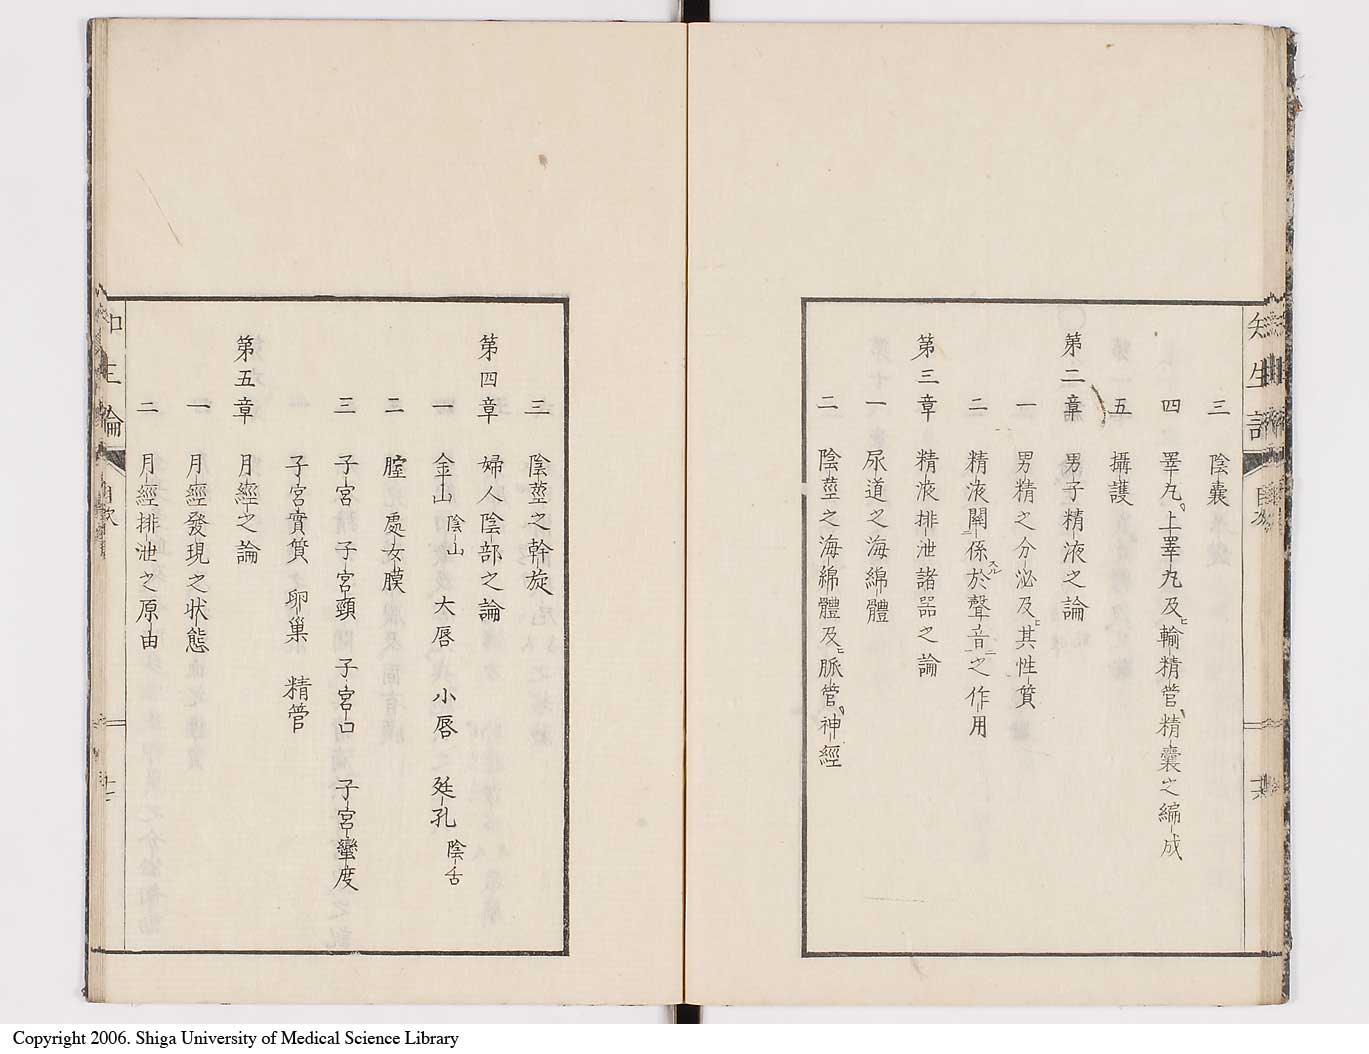 三 陰囊
四 睪丸、上睪丸及ヒ輸精管、精囊之編成
五 攝護
第二章 男子精液之論
一 男精之分泌及ヒ其性質
二 精液關係スル於聲音之作用
第三章 精液排泄諸器之論
一 尿道之海綿體
二 陰莖之海綿體及ヒ脈管、神經
三 陰莖之斡旋
第四章 婦人陰部之論
一 金山 陰山 大唇 小唇 廷孔 陰舌
二 膣 處女膜
三 子宮 子宮頸 子宮口 子宮蠻度
子宮實質 卵巢 精管
第五章 月經之論
一 月經發現之状態
二 月經排泄之原由
論
Copyright 2006. Shiga University of Medical Science Library